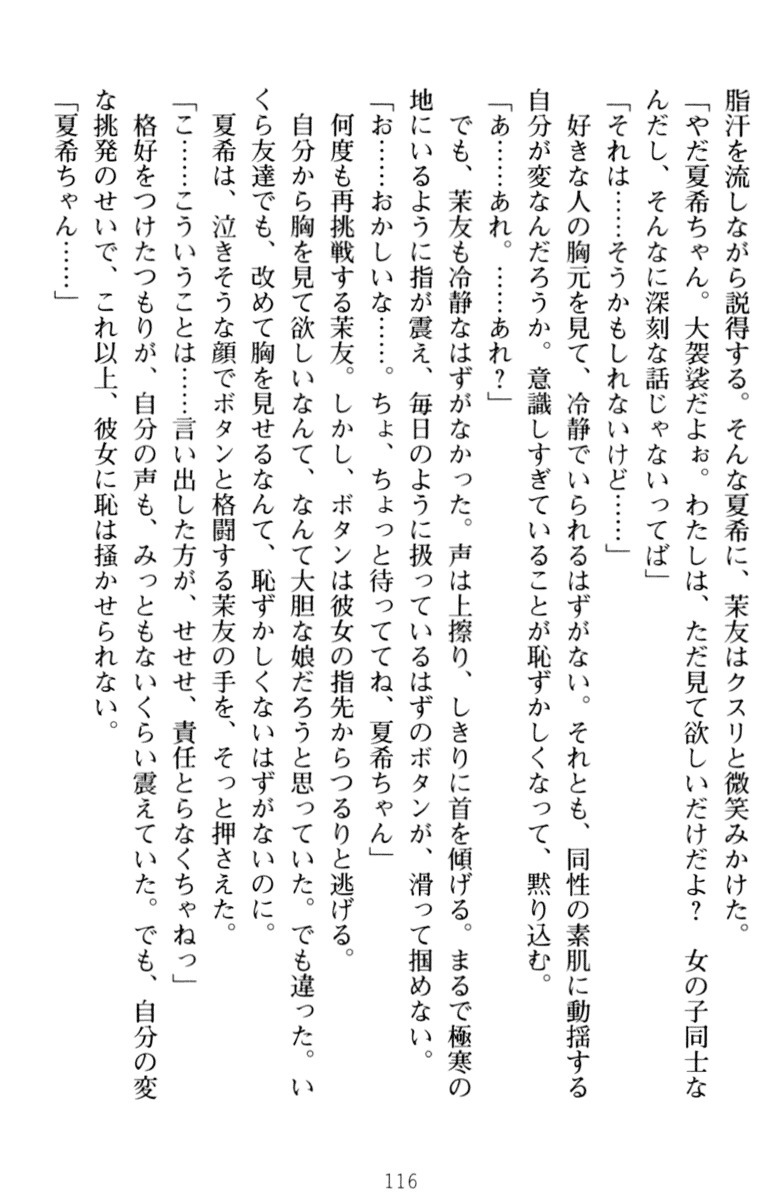 脂汗を流しながら説得する。そんな夏希に、茉友はクスリと微笑みかけた。
「やだ夏希ちゃん。大袈裟だよぉ。わたしは、ただ見て欲しいだけだよ？　女の子同士な
んだし、そんなに深刻な話じゃないってば」
「それは……そうかもしれないけど……」
　好きな人の胸元を見て、冷静でいられるはずがない。それとも、同性の素肌に動揺する
自分が変なんだろうか。意識しすぎていることが恥ずかしくなって、黙り込む。
「あ……あれ。……あれ？」
　でも、茉友も冷静なはずがなかった。声は上擦り、しきりに首を傾げる。まるで極寒の
地にいるように指が震え、毎日のように扱っているはずのボタンが、滑って掴めない。
「お……おかしいな……。ちょ、ちょっと待っててね、夏希ちゃん」
　何度も再挑戦する茉友。しかし、ボタンは彼女の指先からつるりと逃げる。
　自分から胸を見て欲しいなんて、なんて大胆な娘だろうと思っていた。でも違った。い
くら友達でも、改めて胸を見せるなんて、恥ずかしくないはずがないのに。
　夏希は、泣きそうな顔でボタンと格闘する茉友の手を、そっと押さえた。
「こ……こういうことは……言い出した方が、せせせ、責任とらなくちゃねっ」
　格好をつけたつもりが、自分の声も、みっともないくらい震えていた。でも、自分の変
な挑発のせいで、これ以上、彼女に恥は掻かせられない。
「夏希ちゃん……」
116